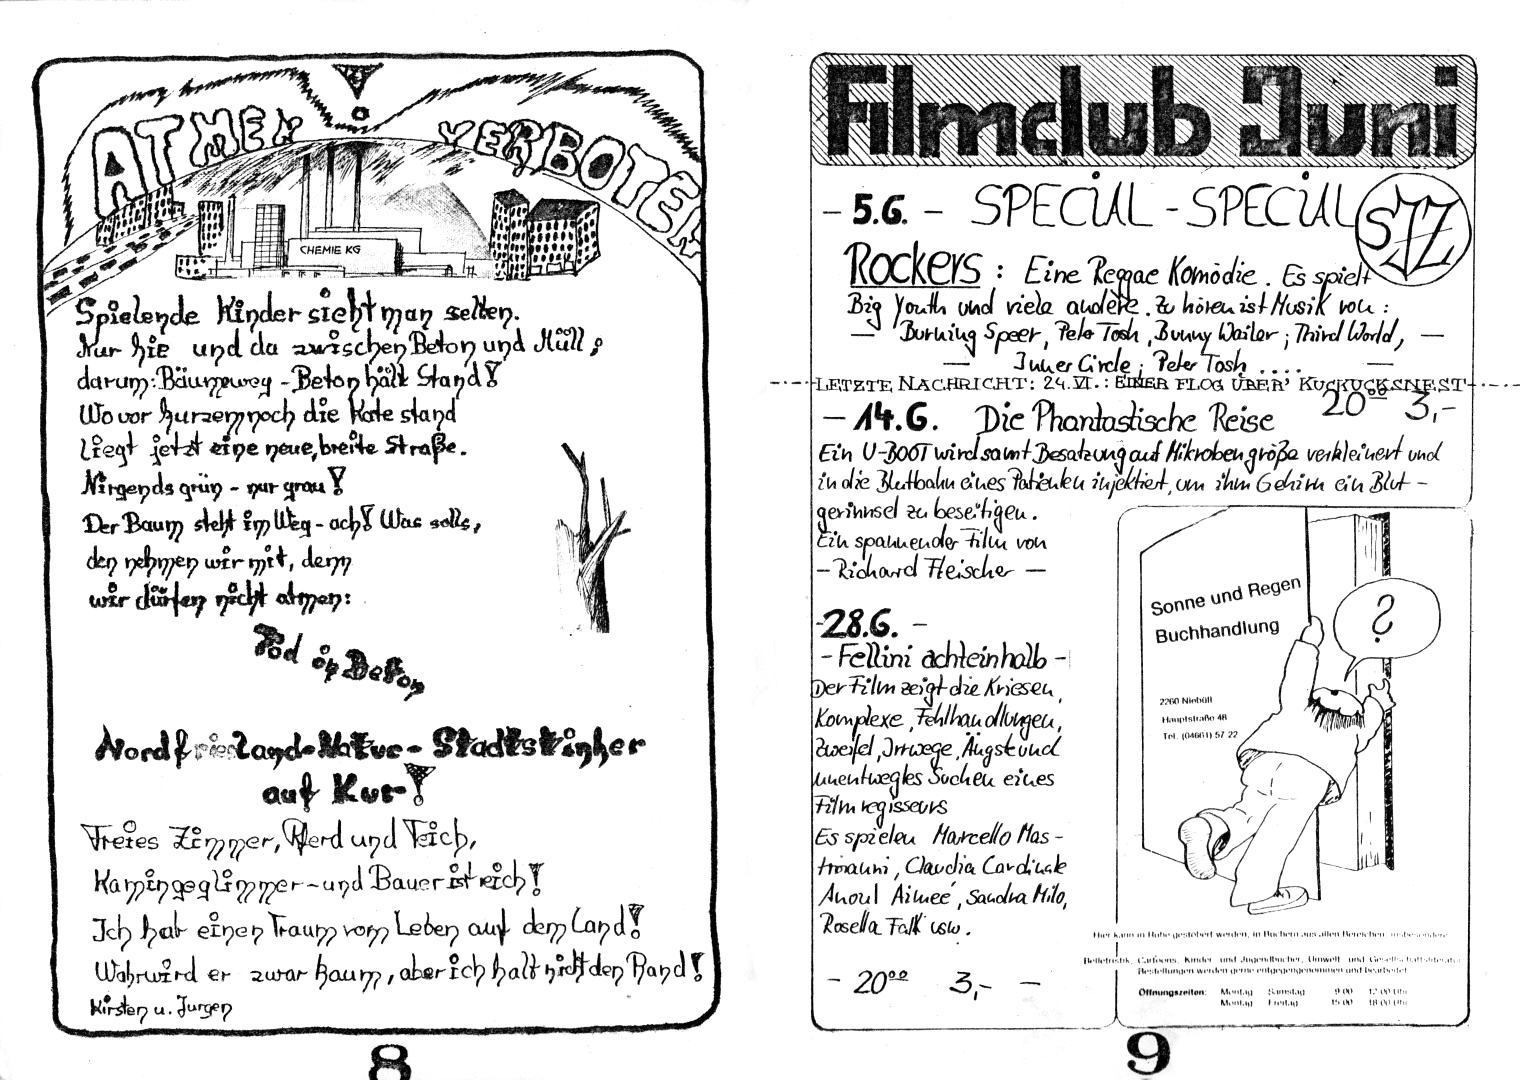 ATMEN VERBOTEN
CHEMIE KG
Spielende Kinder sieht man selten.
Nur hie und da zwischen Beton und Müll;
darum: Bäume weg - Beton hält Stand!
Wo vor kurzem noch die Kate stand
liegt jetzt eine neue, breite Straße.
Nirgends grün - nur grau!
Der Baum steht im Weg - ach! Was solls,
den nehmen wir mit, denn
wir dürfen nicht atmen:
Tod in Beton
Nordfriesland-Natur - Stadtstinker
auf Kur!
Freies Zimmer, Pferd und Teich,
Kamingeglimmer - und Bauer ist reich!
Ich hab einen Traum vom Leben auf dem Land!
Wahr wird er zwar kaum, aber ich halt nicht den Rand!
Kirsten u. Jurgen
8
Filmclub Juni
- 5.6. - SPECiAL - SPECiAL
SJZ
Rockers : Eine Reggae Komödie. Es spielt
Big Youth und viele andere. Zu hören ist Musik von:
— Burning Speer, Peter Tosh, Bunny Wailer; Third World, —
— Inner Circle; Peter Tosh .... —
LETZTE NACHRICHT: 24.VI.: EINER FLOG ÜBER' KUCKUCKSNEST
20⁰⁰ 3,-
- 14.6. Die Phantastische Reise
Ein U-BOOT wird samt Besatzung auf Mikrobengröße verkleinert und
in die Blutbahn eines Patienten injektiert, um ihm Gehirn ein Blut-
gerinnsel zu beseitigen.
Ein spannender Film von
- Richard Fleischer -
- 28.6. -
- Fellini achteinhalb -
Der Film zeigt die Kriesen,
Komplexe, Fehlhandlungen,
Zweifel, Irrwege, Ängste und
unentwegtes Suchen eines
Filmregisseurs
Es spielen Marcello Mas-
troianni, Claudia Cardinale
Anoul Aimeé, Sandra Milo,
Rosella Falk usw.
- 20⁰⁰ 3,- -
Sonne und Regen
Buchhandlung
?
2260 Niebüll
Hauptstraße 48
Tel. (04661) 57 22
Hier kann in Ruhe gestöbert werden, in Büchern aus allen Bereichen, insbesondere
Belletristik, Cartoons, Kinder- und Jugendbücher, Umwelt- und Gesellschaftsliteratur
Bestellungen werden gerne entgegengenommen und bearbeitet
Öffnungszeiten: Montag Samstag 9.00 12.00 Uhr
Montag Freitag 15.00 18.00 Uhr
9